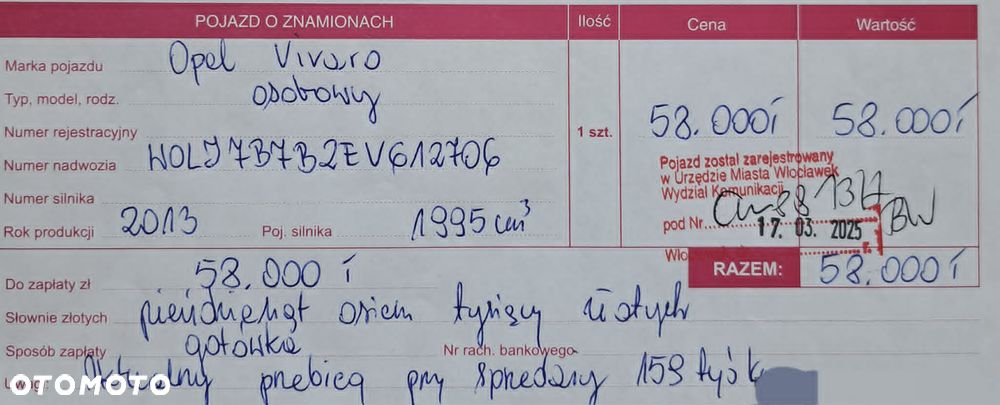 POJAZD O ZNAMIONACH Ilość Cena Wartość
Marka pojazdu Opel Vivaro
Typ, model, rodz. osobowy
Numer rejestracyjny 1 szt. 58.000 58.000
Numer nadwozia WOLJ7B7B2EV612706
Pojazd został zarejestrowany
w Urzędzie Miasta Włocławek
Wydział Komunikacji
Numer silnika
pod Nr
17. 03. 2025
Rok produkcji 2013 Poj. silnika 1995 cm³
RAZEM: 58.000
Do zapłaty zł 58.000
Słownie złotych osiem tysięcy złotych
Sposób zapłaty gotówka Nr rach. bankowego
Uwagi przebieg przy sprzedaży 159 tyś k
OTOMOTO